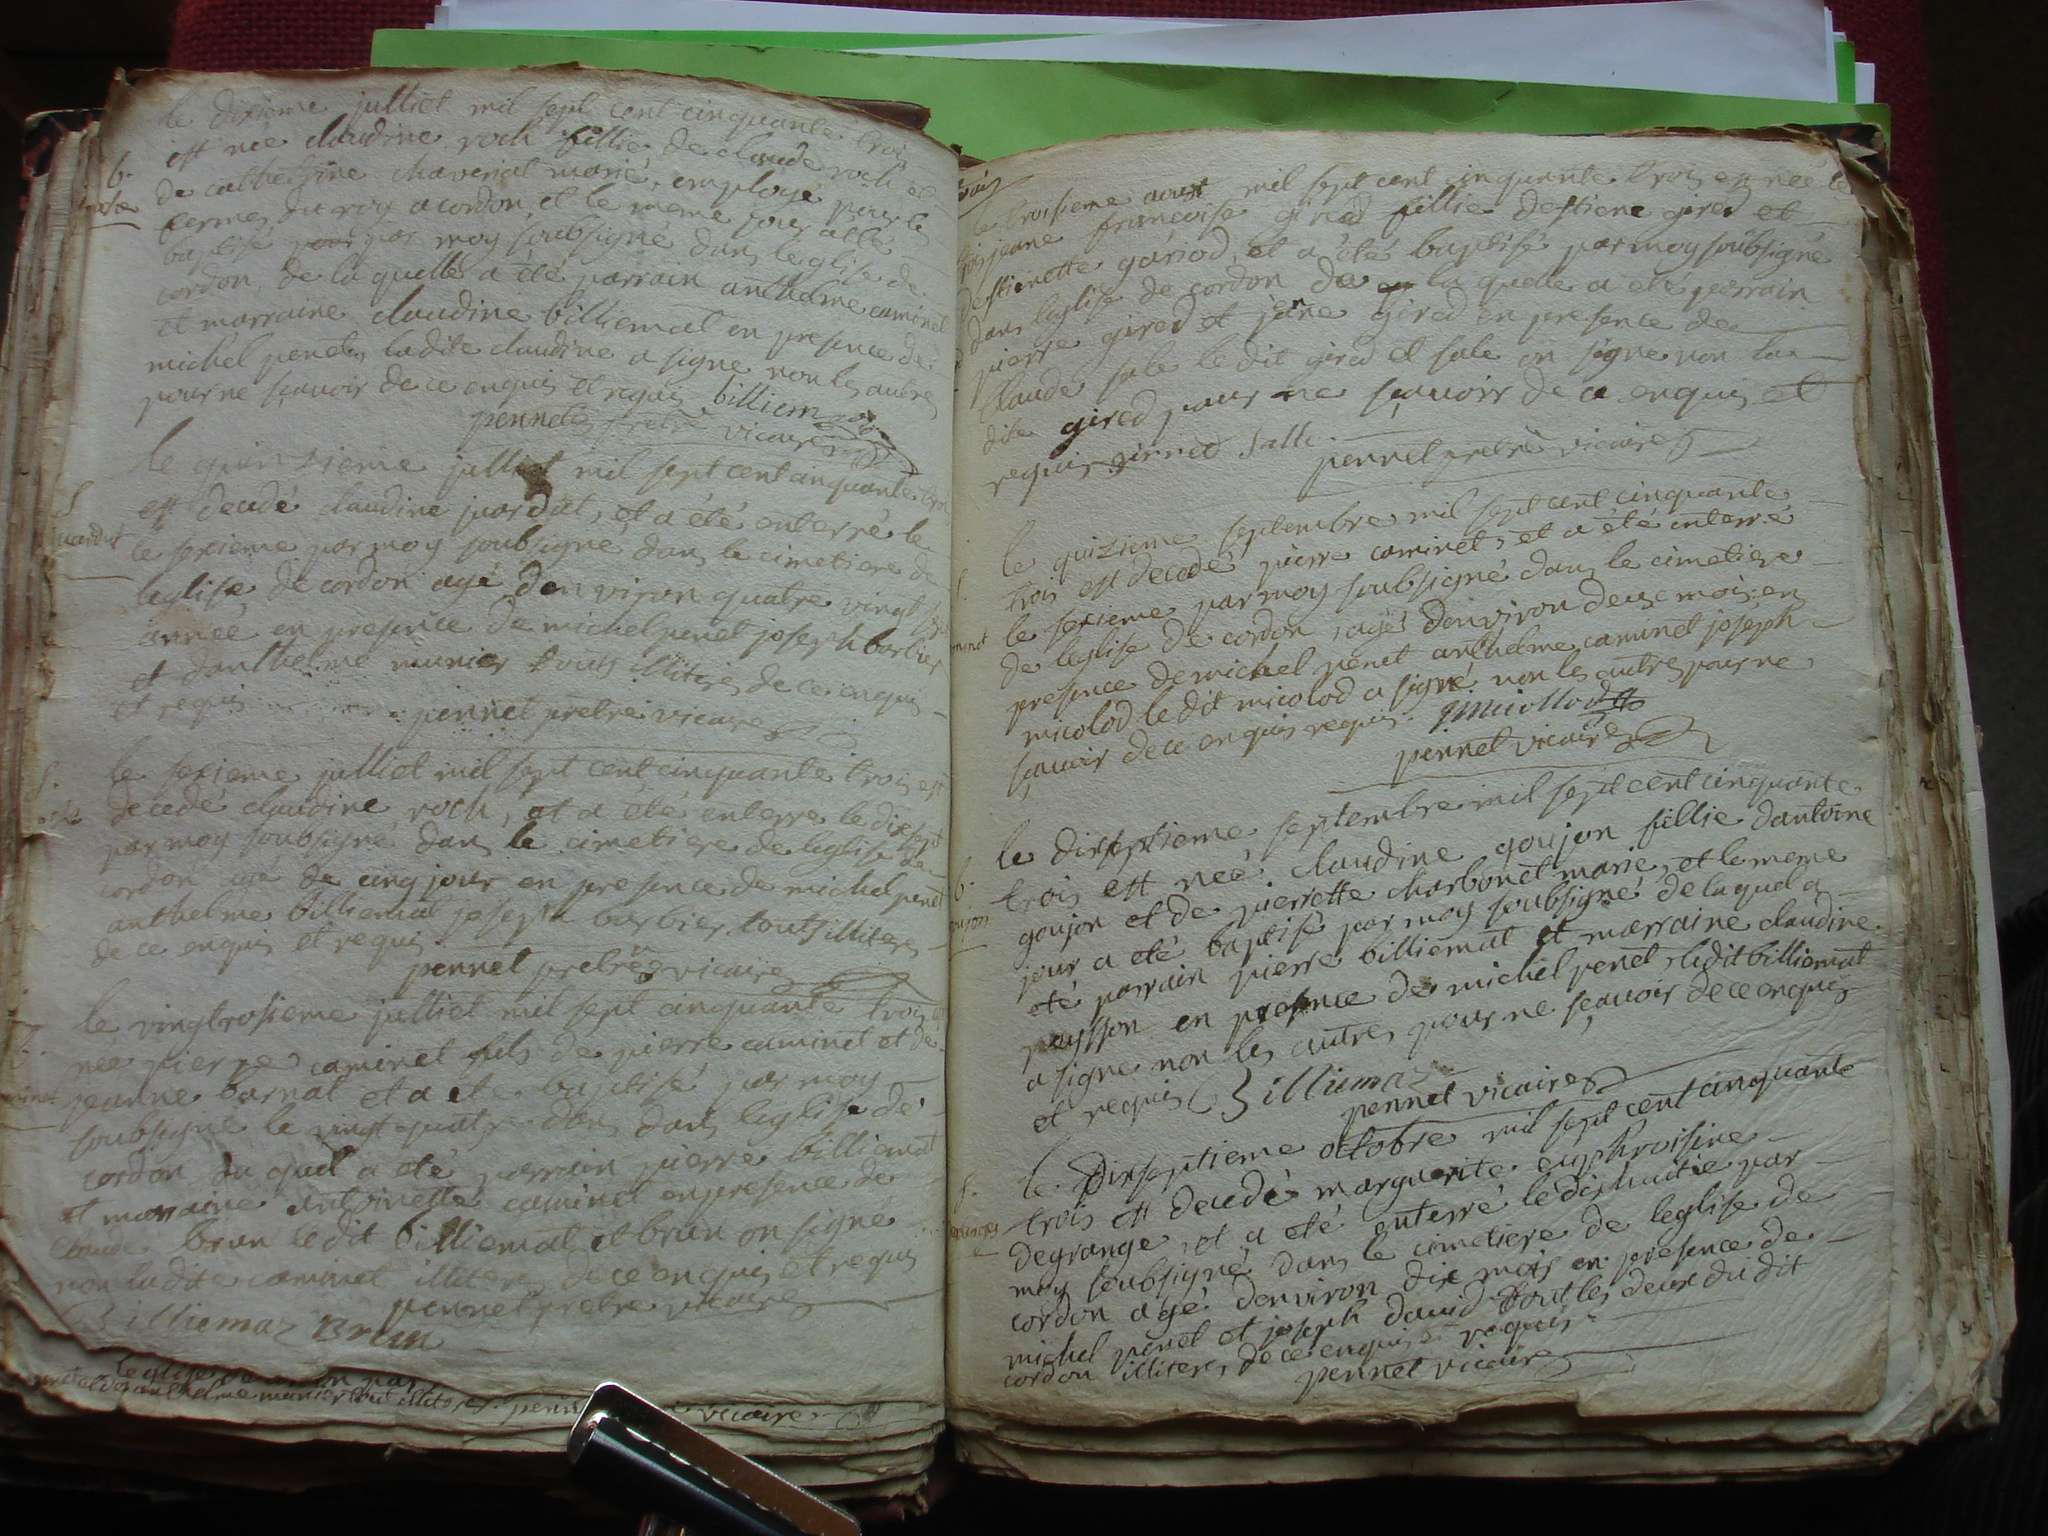 le dixieme julliet mil sept cent cinquante trois
b. est neé claudine roch fillie de claude roch et
de catherine chaveriat marié, employé pour les
fermes du roy a cordon, et le meme jour a eté
baptisé par moy soubsigné dans leglise de
cordon, de la quelle a été parrain anthelme caminet
et marraine claudine billiemat en presence de
michel penet, ladite claudine a signe non les autres
pour ne sçavoir de ce enquis et requis billiemaz
pennet pretre vicaire
le quinzieme julliet mil sept cent cinquante trois
S est decedé claudine juardit, et a été enterré le
juardit le sexieme par moy soubsigné dans le cimetiere de
leglise de cordon agé denviron quatre vingt
anneé en presence de michel penet joseph barbier
et danthelme munier touts illiteres de ce enquis
et requis pennet pretre vicaire
S. le sexieme julliet mil sept cent cinquante trois est
roch decedé claudine roch, et a été enterre le dixsept
par moy soubsigné dans le cimetiere de leglise de
cordon agé de cinq jour en presence de michel penet
anthelme billiemat joseph barbier touts illiteres
de ce enquis et requis
pennet pretre vicaire
le vingtrosieme julliet mil sept cinquante trois est
neé pierre caminet fils de pierre caminet et de
jeanne barnat et a ete baptisé par moy
soubsigne le vingt quatre dans leglise de
cordon du quel a eté parrain pierre billiemat
et marraine antoinette caminet en presence de
claude brun le dit billiemat et brun on signe
non ladite caminet illitere, de ce enquis et requis
pennet pretre vicaire
Billiemaz Brun
leglise de cordon par
anthelme munier tout illiteres penn vicaire
le troisieme aoust mil sept cent cinquante trois est neé
jeane francoise gired fillie destiene gired et
destienette gariod, et a été baptisé par moy soubsigné
dans leglise de cordon de la quelle a eté parrain
pierre gired et jane gired en presence de
claude sale le dit gired et sale on signe non la
dite gired pour ne sçavoir de ce enquis et
requis girred Salle
pennet pretre vicaire
le quizieme septembre mil sept cent cinquante
trois est decedé pierre caminet, et a été enterré
le sexieme par moy soubsigné dans le cimetiere
de leglise de cordon, agé denviron deux mois en
presence de michel penet anthelme caminet joseph
micolod le dit micolod a signé non les autres pour ne
sçavoir de ce enquis requis. jmicollod
pennet vicaire
le dixseptieme septembre mil sept cent cinquante
b. trois est neé claudine goujon fillie dantoine
goujon goujon et de pierrette charbonet marie, et le meme
jour a eté baptisé par moy soubsigné de la quel a
eté parrain pierre billiemat et marraine claudine
peysson en presence de michel penet, ledit billiemat
a signe non les autres pour ne sçavoir de ce enquis
et requis Billiemaz
pennet vicaire
le dixseptieme octobre mil sept cent cinquante
S. trois est decedé marguerite euphroisine
degrange, et a eté enterré le dixhuitie par
moy soubsigné dans le cimetiere de leglise de
cordon agé denviron dix mois en presence de
michel penet et joseph david tout les deux du dit
cordon illiteres, de ce enquis et requis
pennet vicaire